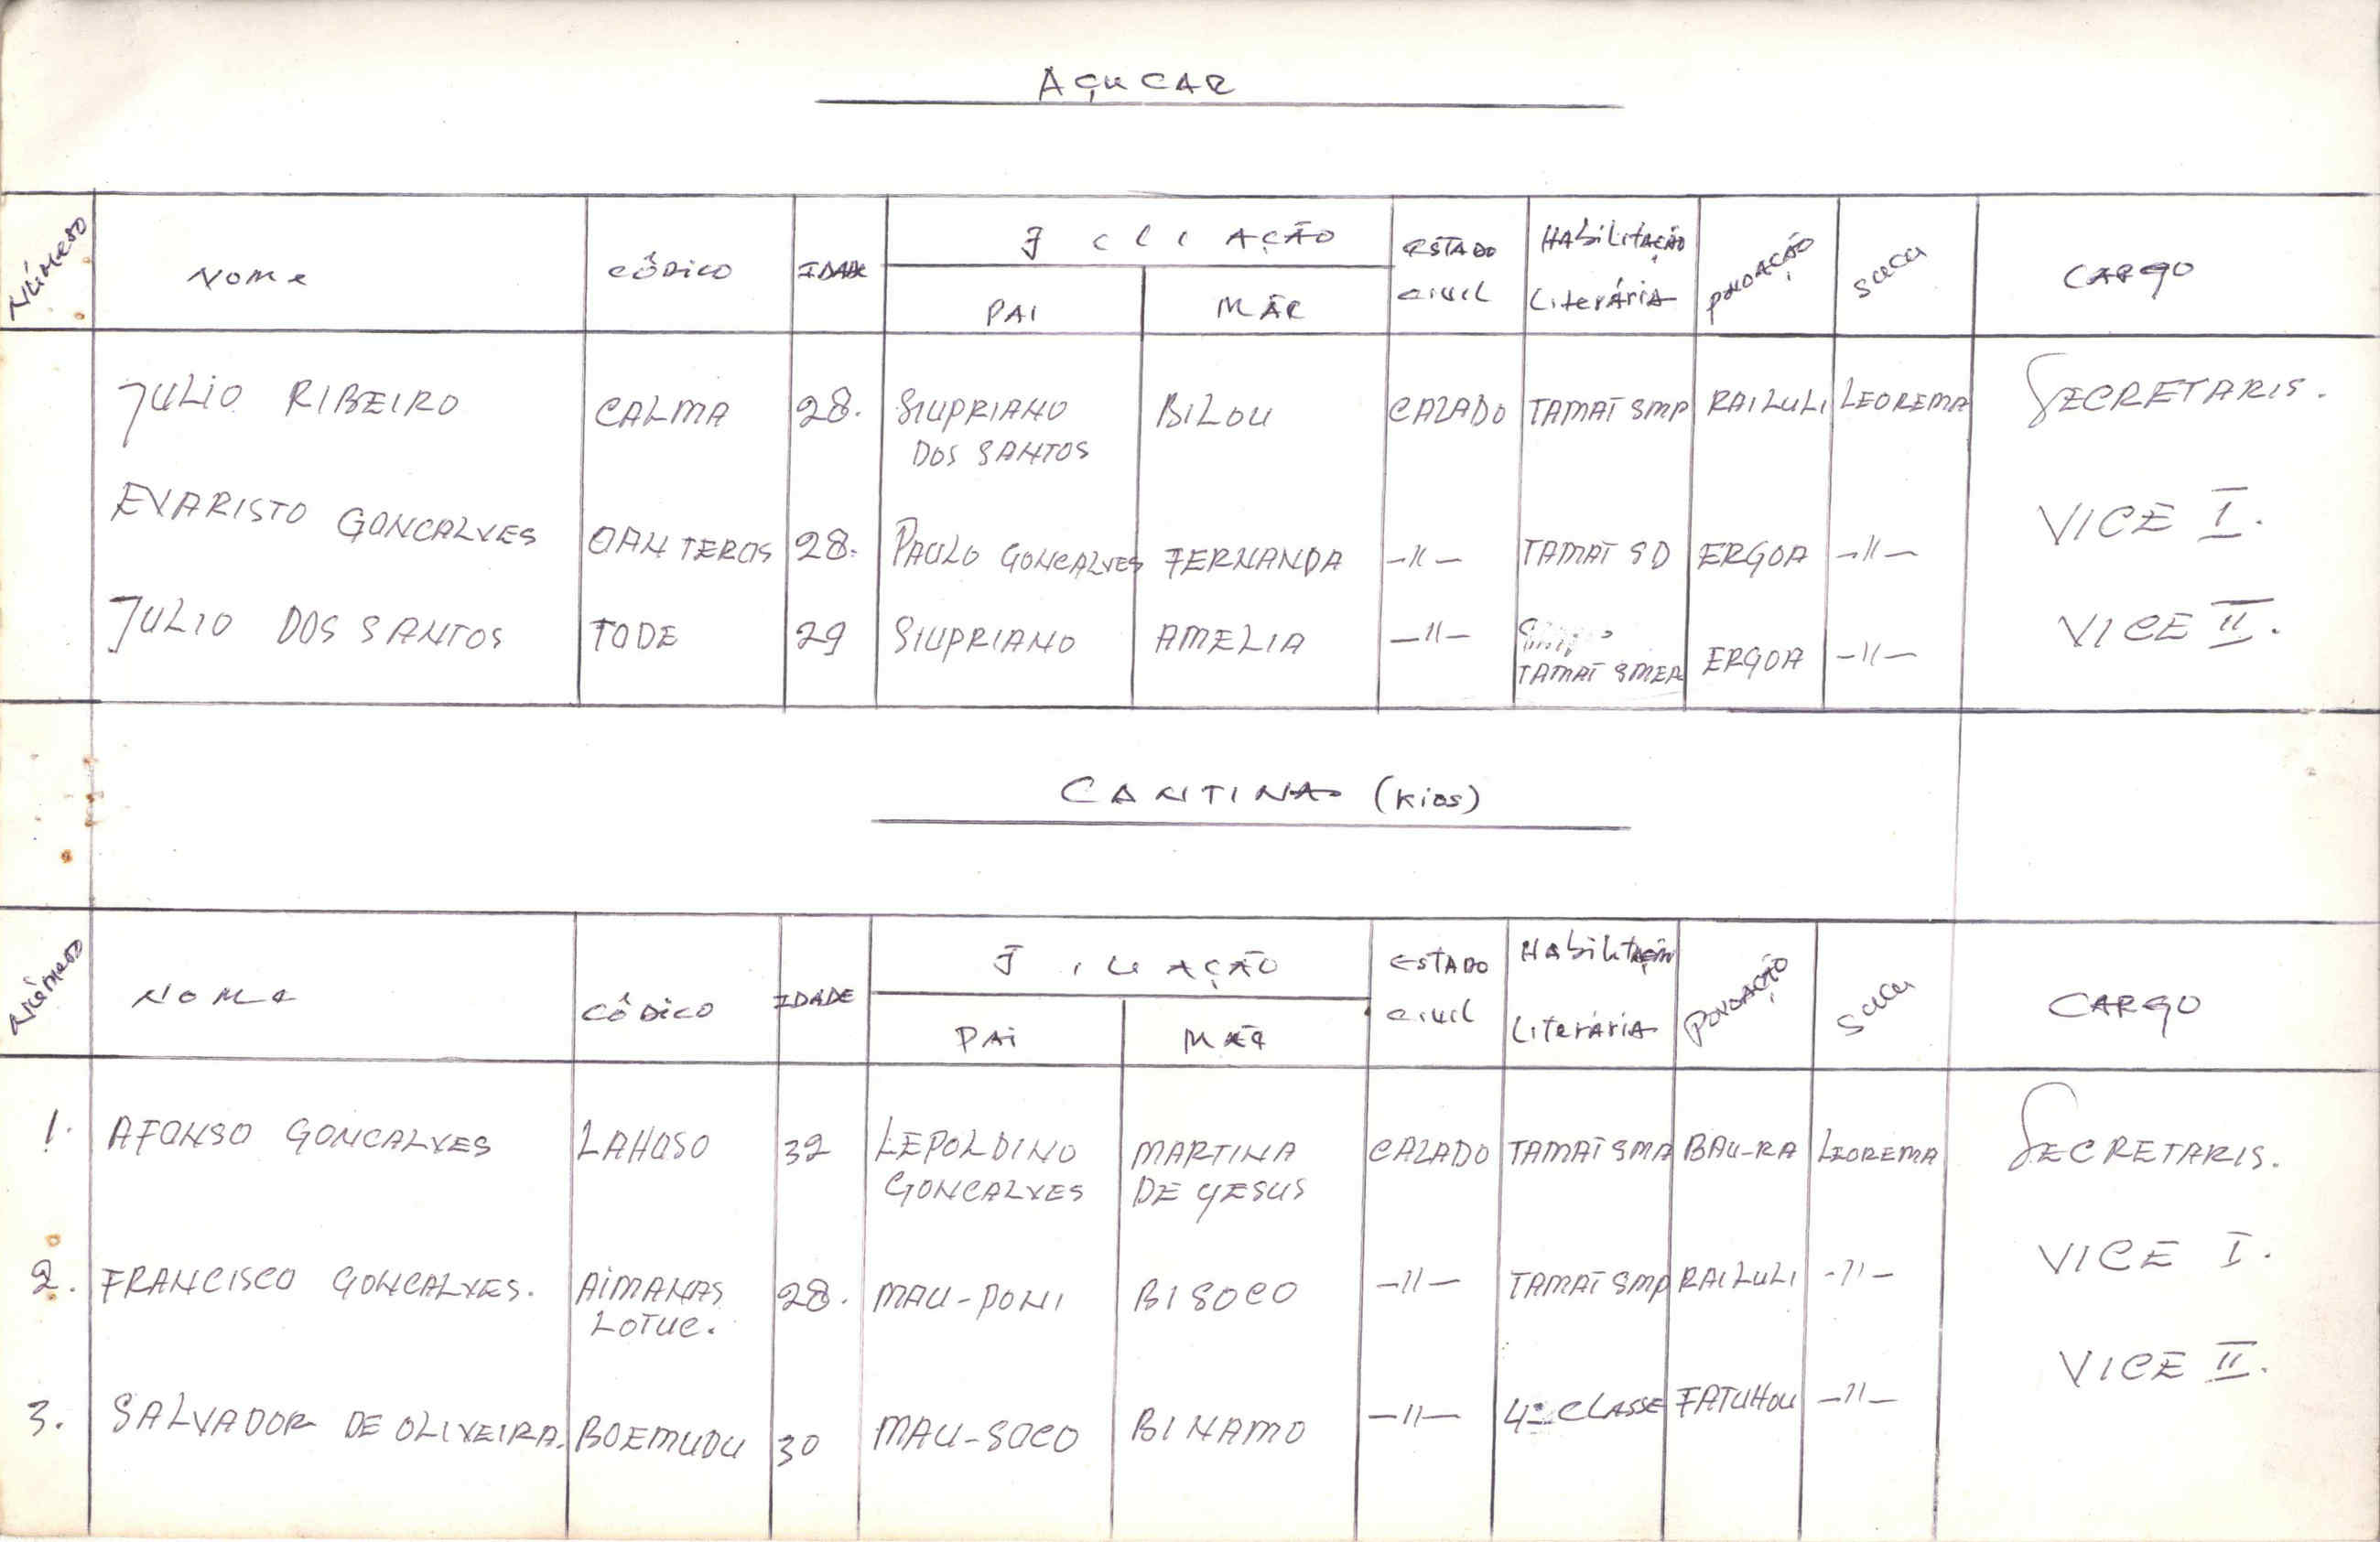 AÇUCAR
Número NOME CÔDICO IDADE FILIAÇÃO ESTADO Civil Habilitação Literária POVOAÇÃO SUCU CARGO
PAI MÃE
JULIO RIBEIRO CALMA 28. SIUPRIANO BILOU CAZADO TAMAT SMP RAILULI LEOREMA SECRETARIS.
DOS SANTOS
EVARISTO GONCALVES OANTEROS 28. PAULO GONCALVES FERNANDA —11— TAMAT SD ERGOA —11— VICE I.
JULIO DOS SANTOS TODE 29 SIUPRIANO AMELIA —11— TAMAT SMEA ERGOA —11— VICE II.
CANTINA (Kios)
Número NOME CÔDICO IDADE FILIAÇÃO ESTADO Civil Habilitação Literária POVOAÇÃO SUCU CARGO
PAI MÃE
1. AFONSO GONCALVES LAHASO 32 LEPOLDINO MARTINA CAZADO TAMAT SMA BAU-RA LEOREMA SECRETARIS.
GONCALVES DE YESUS
2. FRANCISCO GONCALVES. AIMANAS 28. MAU-PONI BISOCO —11— TAMAT SMP RAILULI —11— VICE I.
LOTUC.
3. SALVADOR DE OLIVEIRA. BOEMUDU 30 MAU-SOCO BINAMO —11— 4ª CLASSE FATUHOU —11— VICE II.